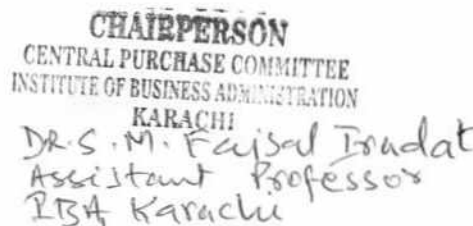 CHAIRPERSON
CENTRAL PURCHASE COMMITTEE
INSTITUTE OF BUSINESS ADMINISTRATION
KARACHI
DR. S. M. Faisal Iradat
Assistant Professor
IBA Karachi